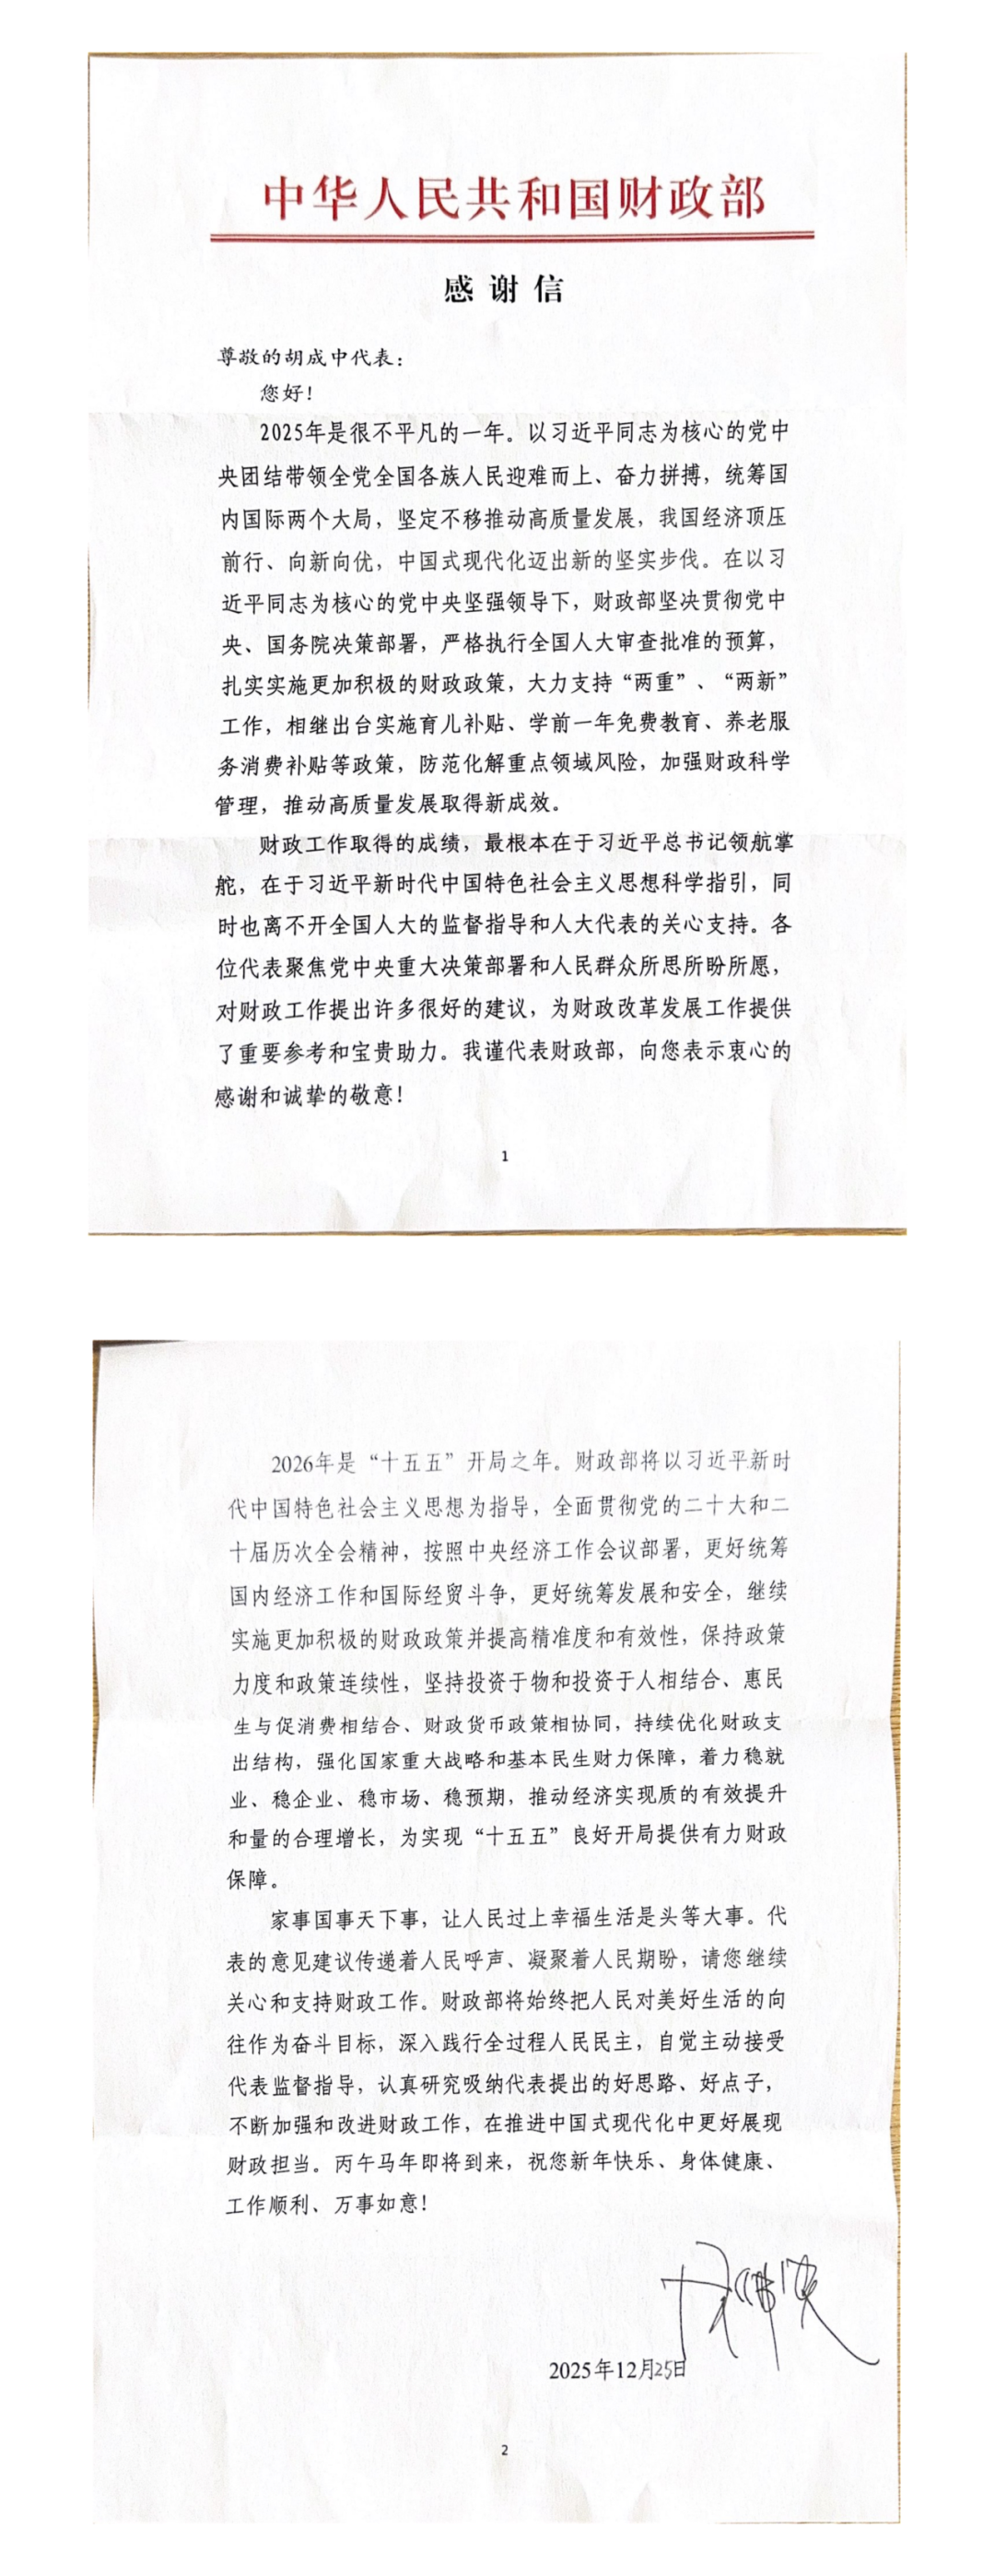 中华人民共和国财政部
感谢信
尊敬的胡成中代表：
您好！
2025年是很不平凡的一年。以习近平同志为核心的党中
央团结带领全党全国各族人民迎难而上、奋力拼搏，统筹国
内国际两个大局，坚定不移推动高质量发展，我国经济顶压
前行、向新向优，中国式现代化迈出新的坚实步伐。在以习
近平同志为核心的党中央坚强领导下，财政部坚决贯彻党中
央、国务院决策部署，严格执行全国人大审查批准的预算，
扎实实施更加积极的财政政策，大力支持“两重”、“两新”
工作，相继出台实施育儿补贴、学前一年免费教育、养老服
务消费补贴等政策，防范化解重点领域风险，加强财政科学
管理，推动高质量发展取得新成效。
财政工作取得的成绩，最根本在于习近平总书记领航掌
舵，在于习近平新时代中国特色社会主义思想科学指引，同
时也离不开全国人大的监督指导和人大代表的关心支持。各
位代表聚焦党中央重大决策部署和人民群众所思所盼所愿，
对财政工作提出许多很好的建议，为财政改革发展工作提供
了重要参考和宝贵助力。我谨代表财政部，向您表示衷心的
感谢和诚挚的敬意！
1
2026年是“十五五”开局之年。财政部将以习近平新时
代中国特色社会主义思想为指导，全面贯彻党的二十大和二
十届历次全会精神，按照中央经济工作会议部署，更好统筹
国内经济工作和国际经贸斗争，更好统筹发展和安全，继续
实施更加积极的财政政策并提高精准度和有效性，保持政策
力度和政策连续性，坚持投资于物和投资于人相结合、惠民
生与促消费相结合、财政货币政策相协同，持续优化财政支
出结构，强化国家重大战略和基本民生财力保障，着力稳就
业、稳企业、稳市场、稳预期，推动经济实现质的有效提升
和量的合理增长，为实现“十五五”良好开局提供有力财政
保障。
家事国事天下事，让人民过上幸福生活是头等大事。代
表的意见建议传递着人民呼声、凝聚着人民期盼，请您继续
关心和支持财政工作。财政部将始终把人民对美好生活的向
往作为奋斗目标，深入践行全过程人民民主，自觉主动接受
代表监督指导，认真研究吸纳代表提出的好思路、好点子，
不断加强和改进财政工作，在推进中国式现代化中更好展现
财政担当。丙午马年即将到来，祝您新年快乐、身体健康、
工作顺利、万事如意！
2025年12月25日
2